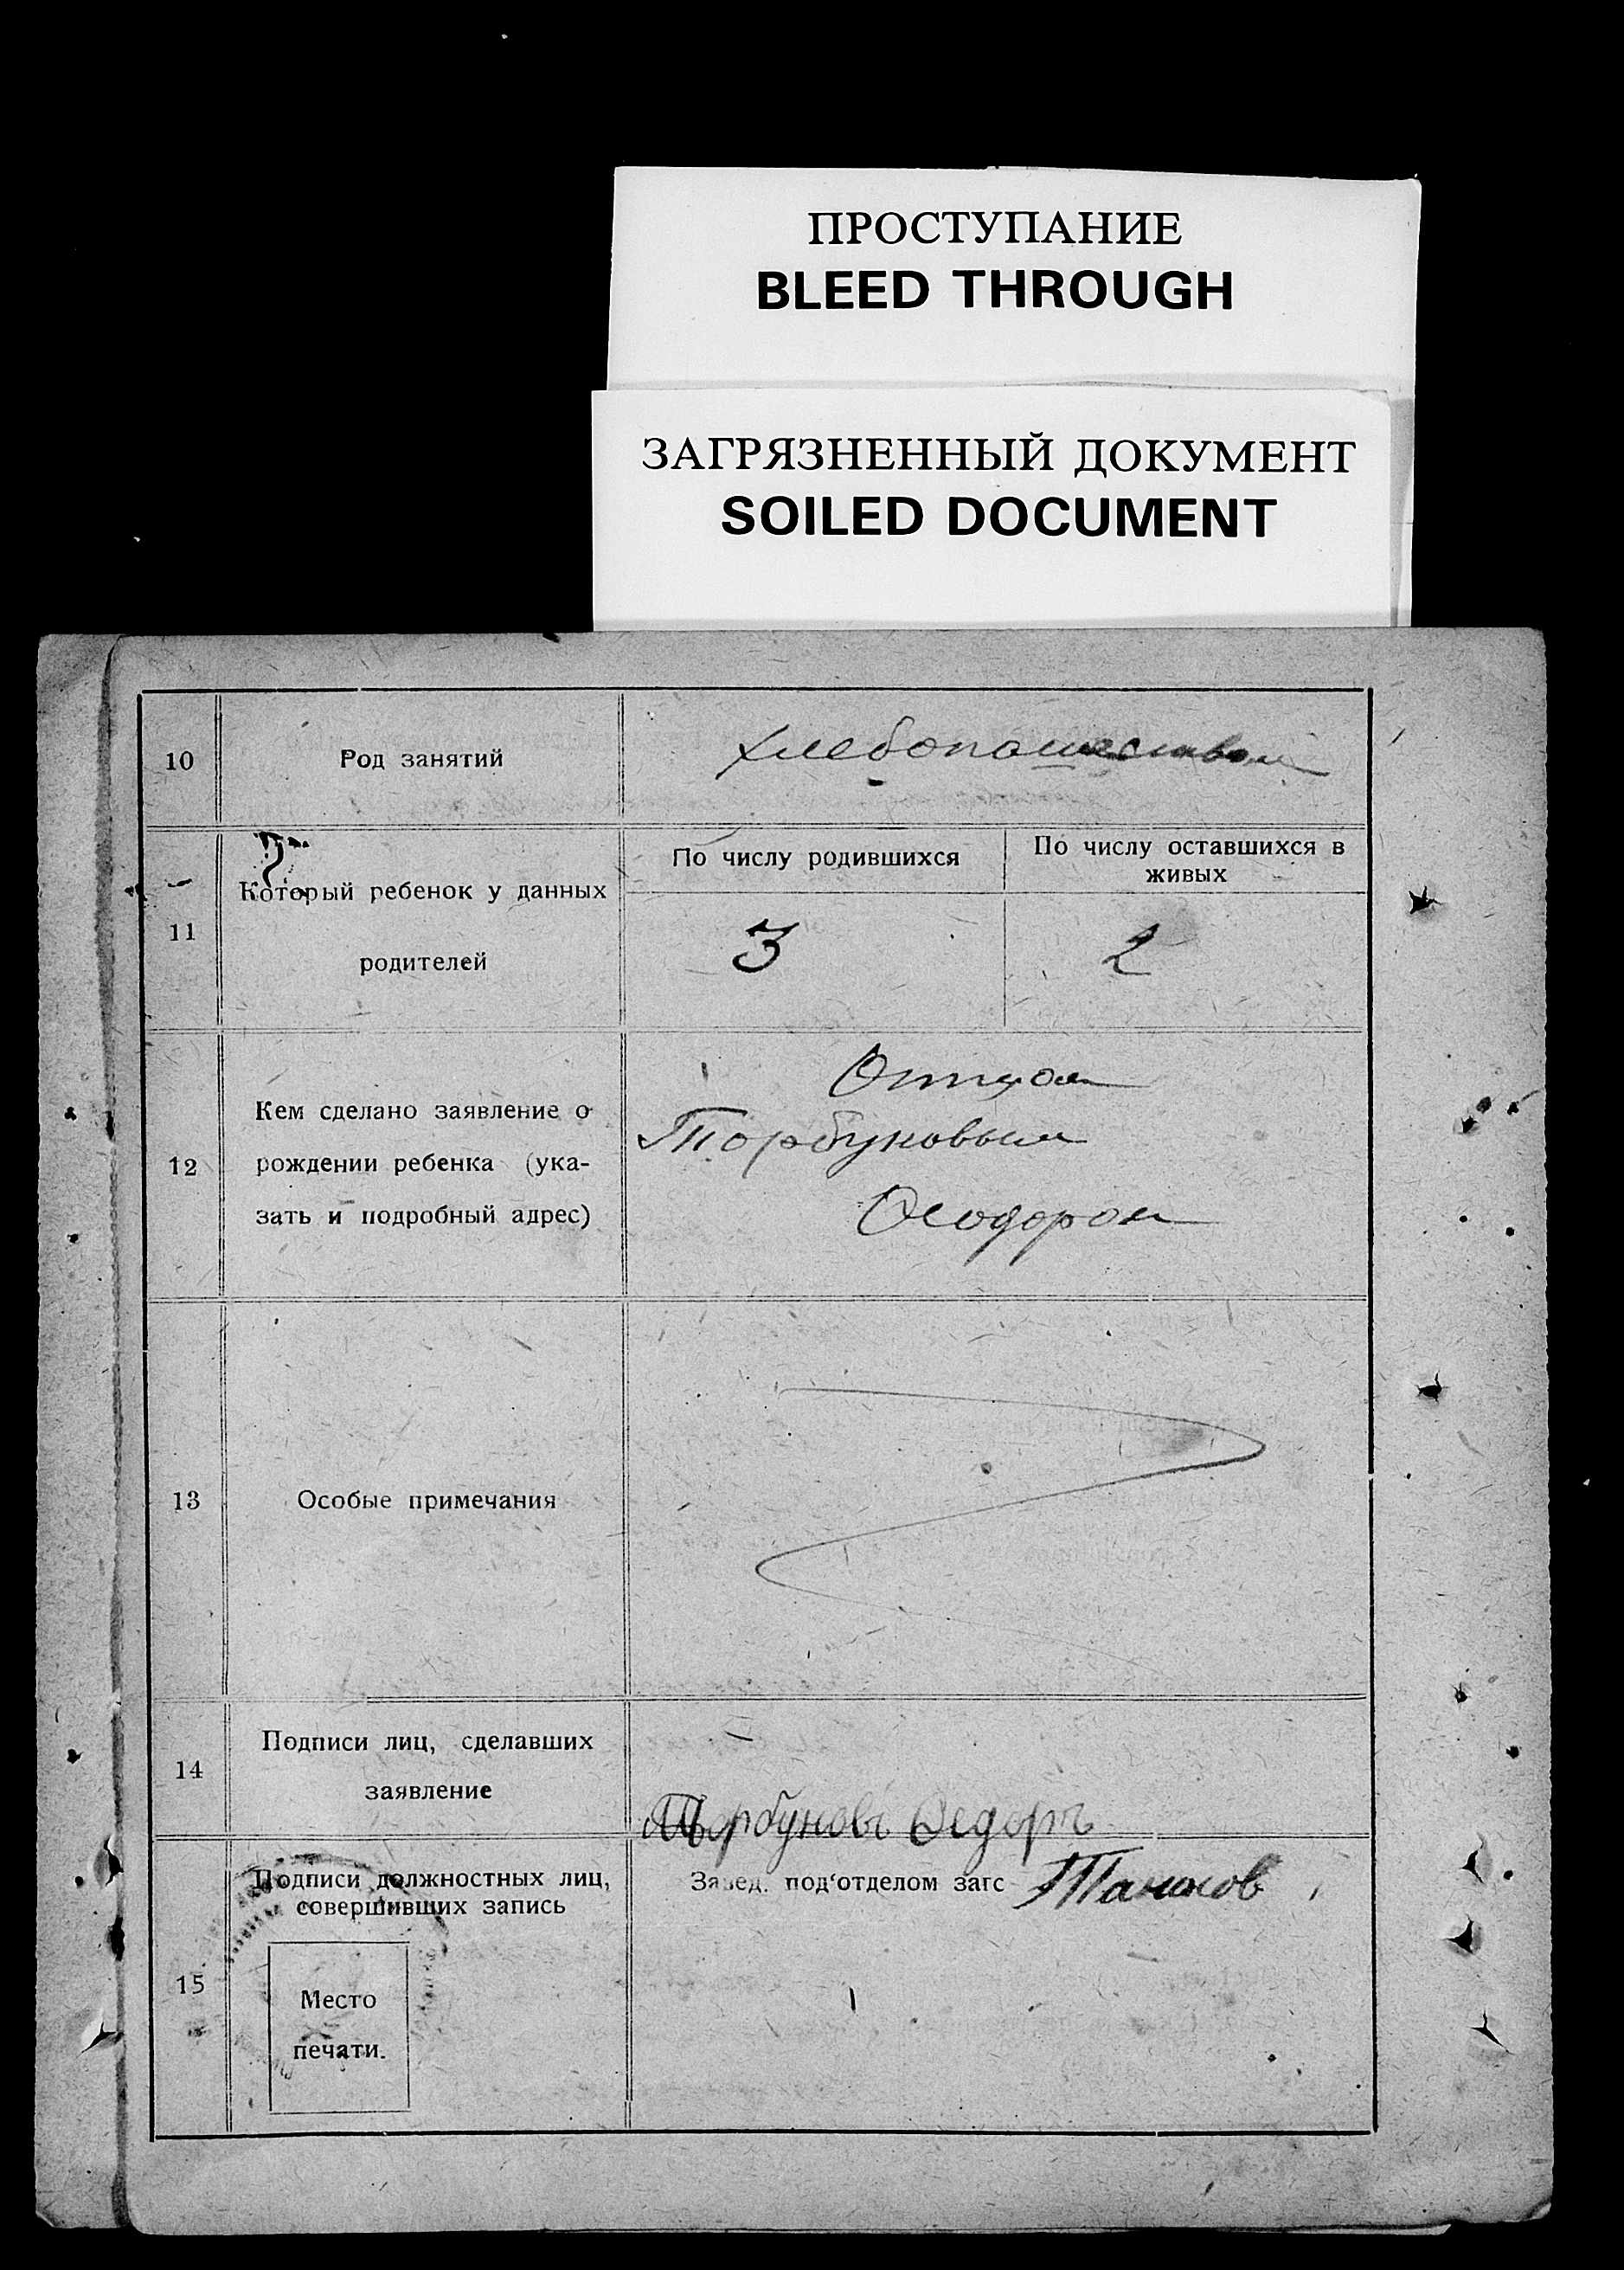 ПРОСТУПАНИЕ
BLEED THROUGH
ЗАГРЯЗНЕННЫЙ ДОКУМЕНТ
SOILED DOCUMENT
10 Род занятий хлебопашеством
11 Который ребенок у данных родителей
По числу родившихся
По числу оставшихся в живых
3 2
12 Кем сделано заявление о
рождении ребенка (ука-
зать и подробный адрес)
Отцом
Торбуновым
Феодором
13 Особые примечания
14 Подписи лиц, сделавших
заявление
Торбуновъ Федоръ
15 Подписи должностных лиц,
совершивших запись
Завед. под‘отделом загс
Место
печати.